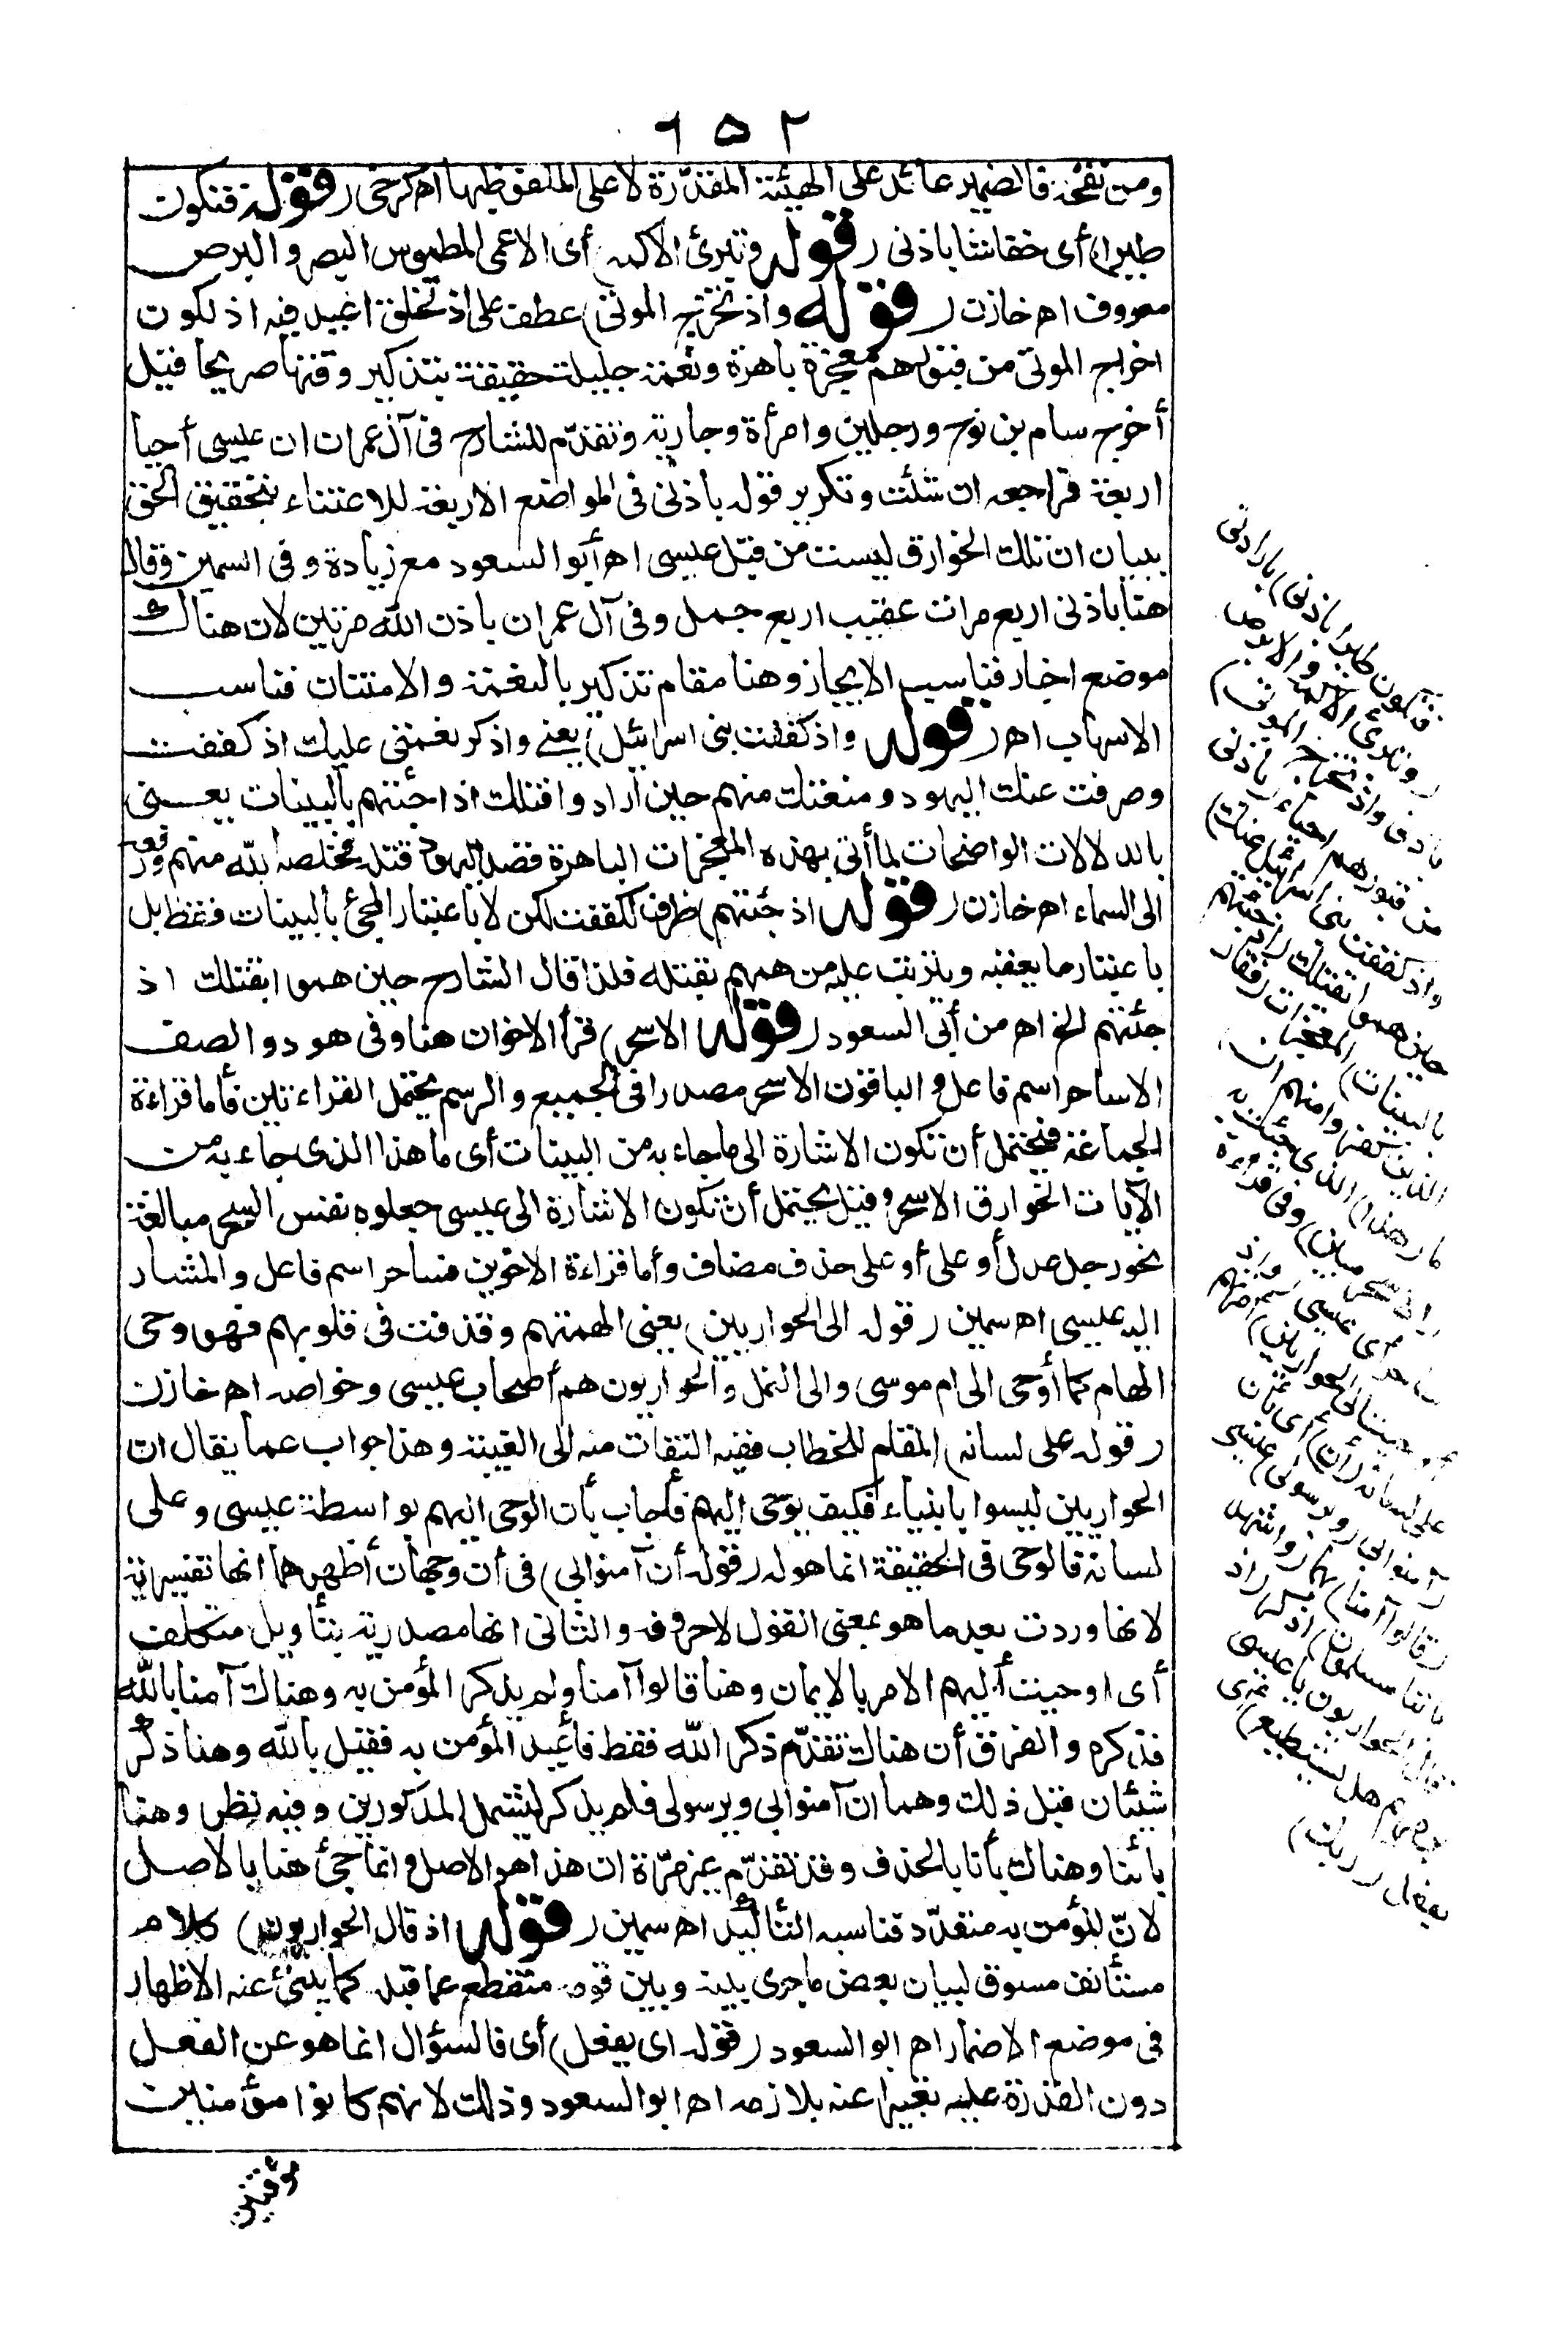 ٦٥٢
ومن نفخه فالضمير عائد على الهيئة المقدّرة لا على الملفوظ بها اهـ كرخى (قوله فتكون
طيرا) أى خفاشا باذنى (قوله وتبرئ الاكمه) أى الاعمى المطموس البصر والبرص
معروف اهـ خازن (قوله واذ تخرج الموتى) عطف على اذ تخلق اعيد فيه اذ لكون
اخراج الموتى من قبورهم معجزة باهرة ونعمة جليلة حقيقة بتذكير وقتها صريحا قيل
أخرج سام بن نوح ورجلين وامرأة وجارية وتقدّم للشارح فى آل عمران ان عيسى أحيا
اربعة فراجعه ان شئت وتكرير قوله باذنى فى المواضع الاربعة للاعتناء بتحقيق الحق
ببيان ان تلك الخوارق ليست من قبل عيسى اهـ أبو السعود مع زيادة وفى السمين وقال
هنا باذنى اربع مرات عقيب اربع جمل وفى آل عمران باذن الله مرتين لان هناك
موضع اخبار فناسب الايجاز وهنا مقام تذكير بالنعمة والامتنان فناسب
الاسهاب اهـ (قوله واذ كففت بنى اسرائيل) يعنى واذكر نعمتى عليك اذ كففت
وصرفت عنك اليهود ومنعتك منهم حين أرادوا قتلك اذا جئتهم بالبينات يعنى
بالدلالات الواضحات لما أتى بهذه المعجزات الباهرة قصد اليهود قتله فخلصه الله منهم ورفعه
الى السماء اهـ خازن (قوله اذ جئتهم) ظرف لكففت لكن لا باعتبار المجئ بالبينات فقط بل
باعتبار ما يعقبه ويترتب عليه من همهم بقتله فلذا قال الشارح حين هموا بقتلك اذ
جئتهم الخ اهـ من أبى السعود (قوله الا سحر) قرأ الاخوان هنا وفى هود والصف
الا ساحر اسم فاعل والباقون الا سحر مصدرا فى الجميع والرسم يحتمل القراءتين فأما قراءة
الجماعة فيحتمل أن تكون الاشارة الى ما جاء به من البينات أى ما هذا الذى جاء به من
الآيات الخوارق الا سحر وقيل يحتمل أن تكون الاشارة الى عيسى جعلوه نفس السحر مبالغة
نحو رجل عدل أو على أو على حذف مضاف وأما قراءة الاخوين فساحر اسم فاعل والمشار
اليه عيسى اهـ سمين (قوله الى الحواريين) يعنى الهمتهم وقذفت فى قلوبهم فهو وحى
الهام كما أوحى الى ام موسى والى النحل والحواريون هم أصحاب عيسى وخواصه اهـ خازن
(قوله على لسانه) المقام للخطاب ففيه التفات منه الى الغيبة وهذا جواب عما يقال ان
الحواريين ليسوا بانبياء فكيف يوحى اليهم فأجاب بأن الوحى اليهم بواسطة عيسى وعلى
لسانه فالوحى فى الحقيقة انما هو له (قوله أن آمنوا بى) فى أن وجهان أظهرهما انها تفسيرية
لانها وردت بعد ما هو بمعنى القول لا حروفه والثانى انها مصدرية بتأويل متكلف
أى اوحيت اليهم الامر بالايمان وهنا قالوا آمنا ولم يذكر المؤمن به وهناك آمنا بالله
فذكره والفرق أن هناك تقدّم ذكر الله فقط فأعيد المؤمن به فقيل بالله وهنا ذكر
شيئان قبل ذلك وهما ان آمنوا بى وبرسولى فلم يذكر ليشمل المذكورين وفيه نظر وهنا
بأننا وهناك بأنا بالحذف وقد تقدّم غير مرّة ان هذا هو الاصل وانما جئ هنا بالاصل
لانّ المؤمن به متعدّد فناسبه التأكيد اهـ سمين (قوله اذ قال الحواريون) كلام
مستأنف مسوق لبيان بعض ما جرى بينه وبين قومه منقطع عما قبله كما ينبئ عنه الاظهار
فى موضع الاضمار اهـ ابو السعود (قوله اى يفعل) أى فالسؤال انما هو عن الفعل
دون القدرة عليه تعبيرا عنه بلازمه اهـ ابو السعود وذلك لانهم كانوا مؤمنين
وقيل
فتكون طيرا باذنى) بارادتى
(وتبرئ الاكمه والابرص
باذنى واذ تخرج الموتى)
من قبورهم احياء (باذنى
واذ كففت بنى اسرائيل عنك)
حين هموا بقتلك (اذ جئتهم
بالبينات) المعجزات (فقال
الذين كفروا منهم ان)
ما (هذا) الذى جئت به
(الا سحر مبين) وفى قراءة
ساحر أى عيسى (واذ
أوحيت الى الحواريين) امرتهم
على لسانه (أن) أى بأن
(آمنوا بى وبرسولى) عيسى
(قالوا آمنا) بهما (واشهد
بأننا مسلمون) اذكر (اذ
قال الحواريون يا عيسى
ابن مريم هل يستطيع) اى
يفعل (ربك)